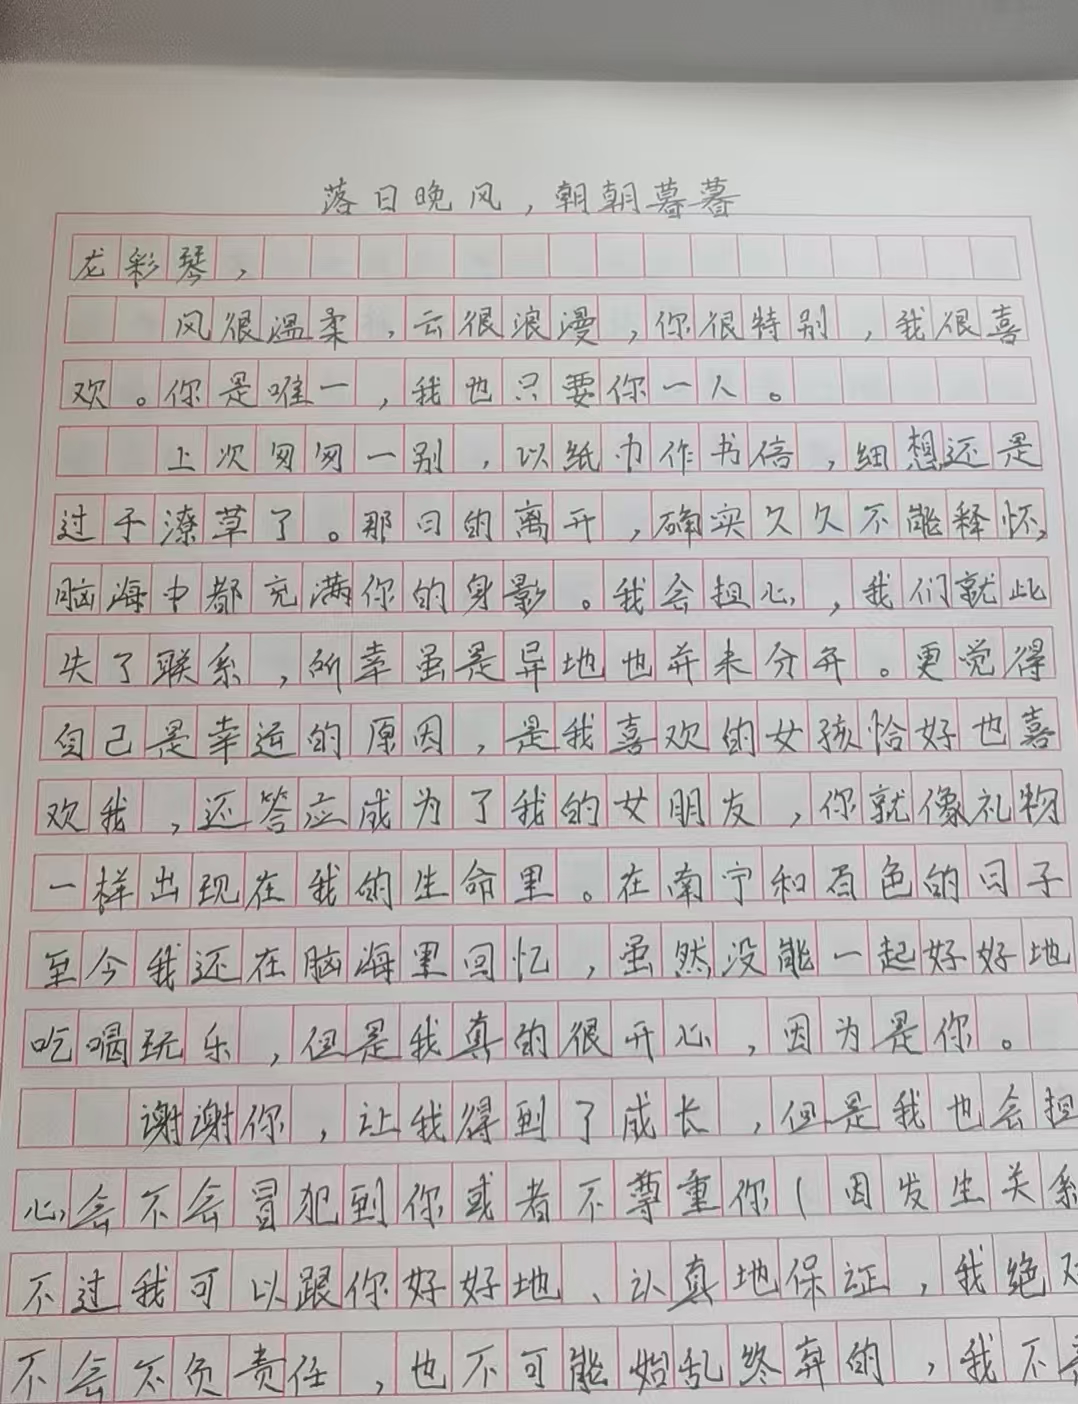 落日晚风，朝朝暮暮
龙彩琴，
风很温柔，云很浪漫，你很特别，我很喜
欢。你是唯一，我也只要你一人。
上次匆匆一别，以纸巾作书信，细想还是
过于潦草了。那日的离开，确实久久不能释怀，
脑海中都充满你的身影。我会担心，我们就此
失了联系，所幸虽是异地也并未分开。更觉得
自己是幸运的原因，是我喜欢的女孩恰好也喜
欢我，还答应成为了我的女朋友，你就像礼物
一样出现在我的生命里。在南宁和百色的日子
至今我还在脑海里回忆，虽然没能一起好好地
吃喝玩乐，但是我真的很开心，因为是你。
谢谢你，让我得到了成长，但是我也会担
心，会不会冒犯到你或者不尊重你（因发生关系
不过我可以跟你好好地、认真地保证，我绝对
不会不负责任，也不可能始乱终弃的，我不